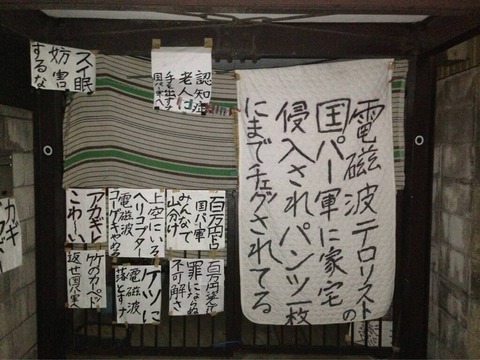 電磁波テロリストの
国パー軍に家宅
侵入されパンツ一枚
にまでチェグされてる
認知症
老人に
手を出す
スイ眠
妨害
するな
百万円占
国パ軍
みんなで
山分け
上空にいる
ヘリコプター
電磁波
アカギレ
こわーい
罪にならぬ
不可解さ
ケツに
電磁波
落とすナ
竹のカーペット
カギ